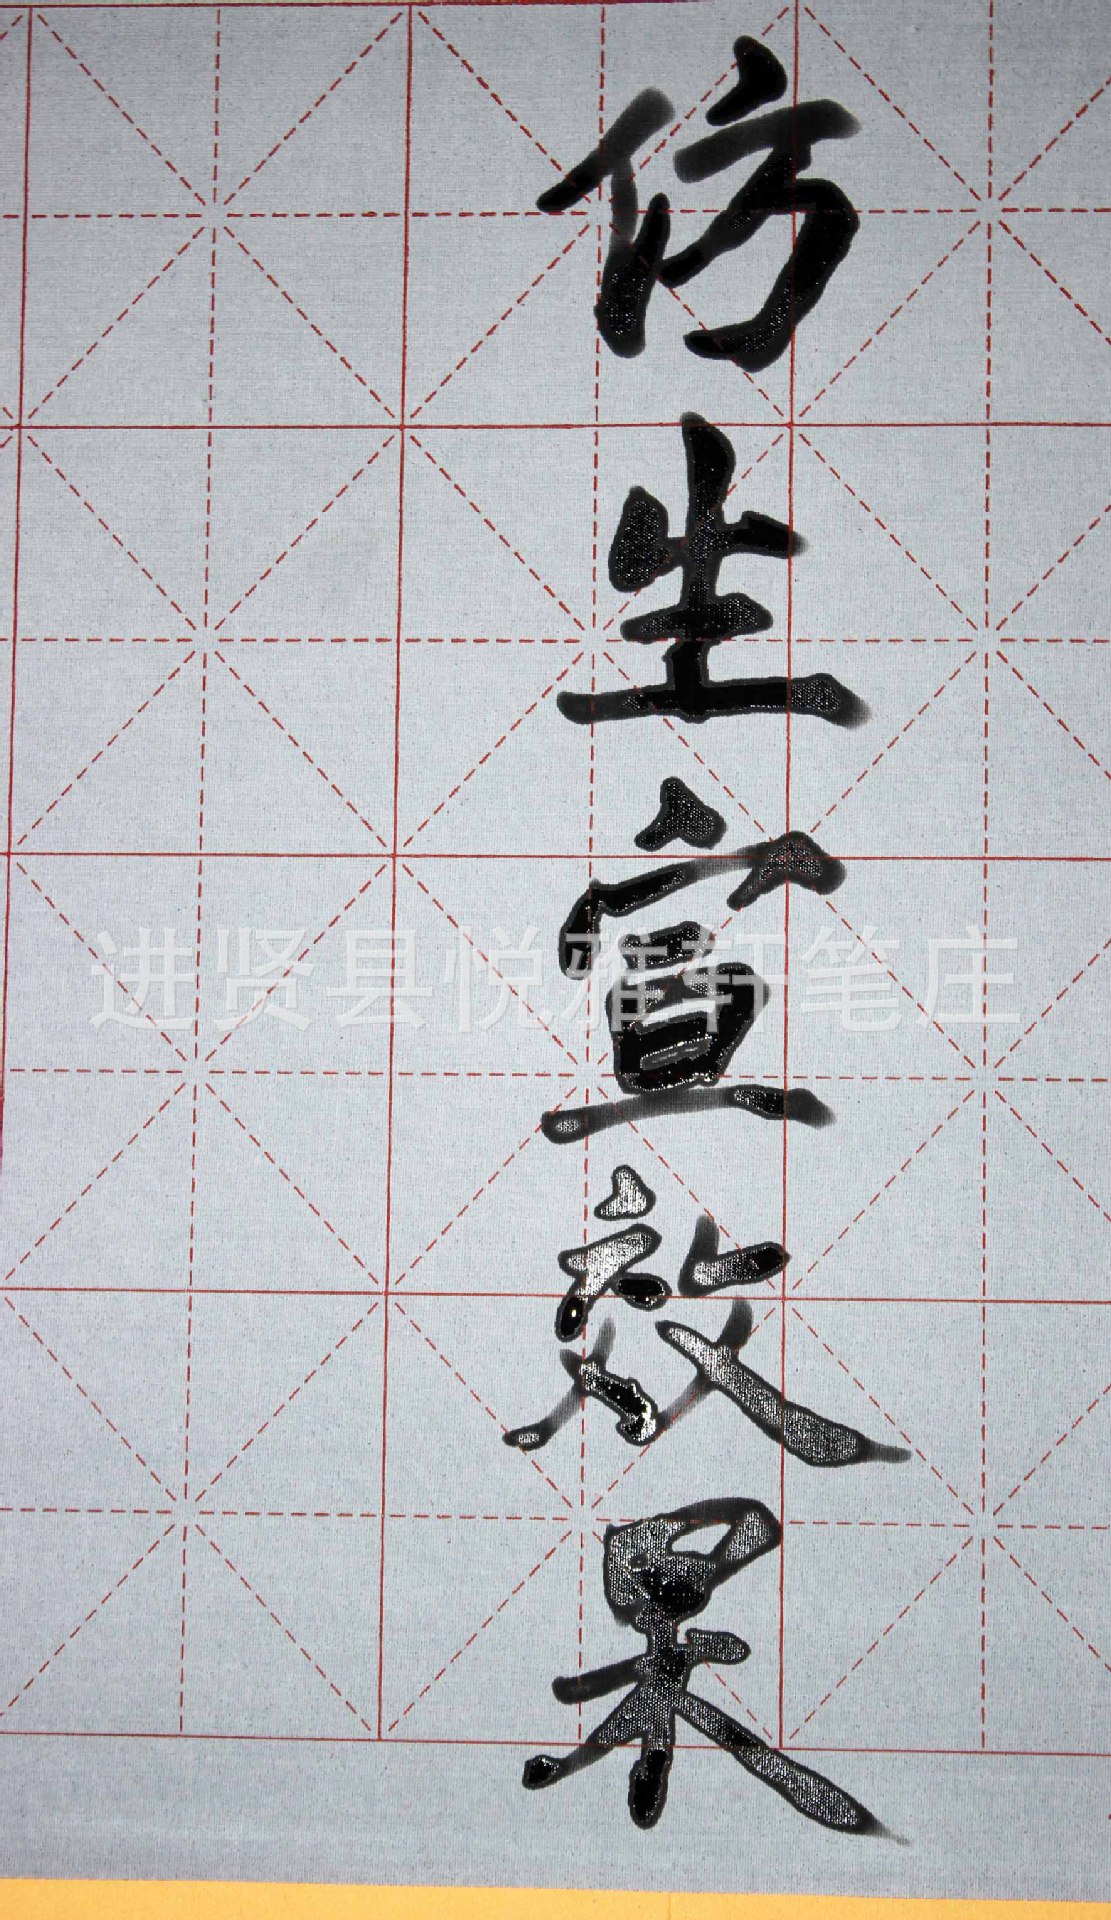 仿生宣效果
进贤县悦雅轩笔庄